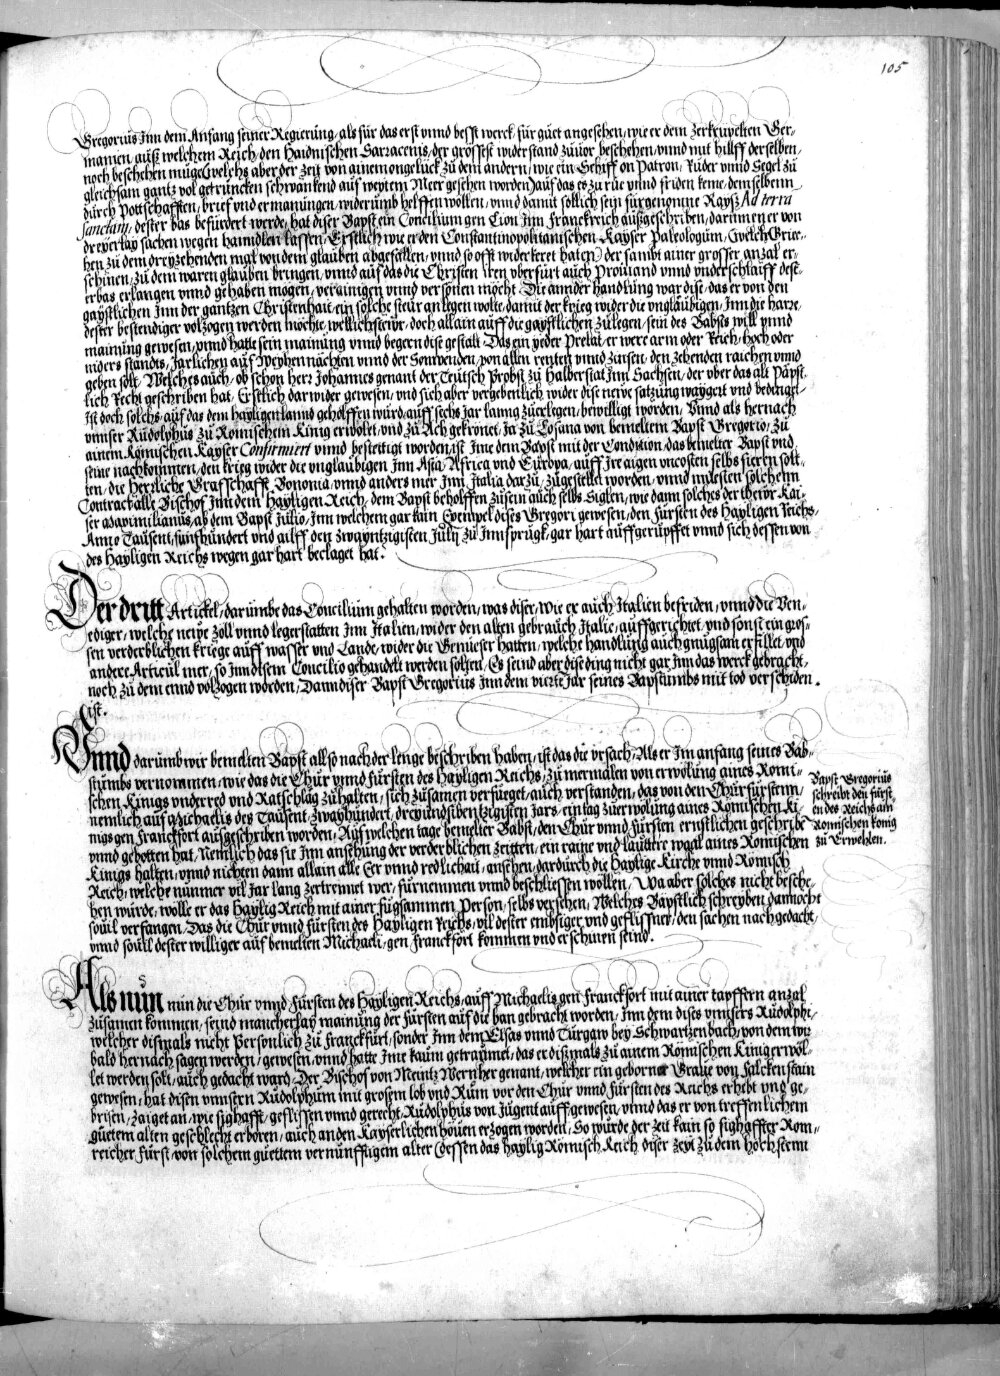 105
Gregorius Inn dem Anfang seiner Regierung, als für das erst vnnd besst werck für guet angesehen, wie er dem zerkrupelten Ger-
manien, auß welchem Reich, den Haidnischen Sarracenis, der grossest widerstand zuuor beschehen, vnnd mit hillff derselben,
noch beschehen müge (welchs aber der zeyt von ainem ongelück zu dem andern, wie ein Schiff on Patron, Rüder vnnd Segel zu
gleichsam gantz vol getruncken schwankend auf weytem Meer gesehen worden) auf das es zu rüe vnnd friden keme, demselbenn
durch Pottschafften, brief vnd ermanungen, widerumb helffen wollen, vnnd damit sollich sein fürgenomne Rayß Ad terra
Sanctam, dester bas befürdert werde, hat diser Bapst ein Concilium gen Lion Inn Franckreich außgeschriben, darinnen er von
dreyerlay sachen wegen hanndlen lassen, Erstlich wie er den Constantinopolitanischen Kayser Paleologum, (welch Grie-
hen zu dem dreyzehenden mal von dem glauben abgefallen, vnnd so offt widerkeret haten) der sambt ainer grosser anzal er-
schinen, zu dem waren glauben bringen, vnnd auf das die Christen iren vberfurt auch Prouiand vnnd vnderschlaiff dest-
erbas erlangen vnnd gehaben mogen, verainigen vnnd versonen möcht. Die annder handlung war dise, das er von den
gaystlichen Inn der gantzen Christenhait, ein solche steur anlegen wolte, damit der krieg wider die vnglaubigen, Inn die harre,
dester bestendiger volzogen werden möchte, wellich steur, doch allain auff die gaystlichen zulegen, sein des Babsts will vnnd
mainung gewesen, vnnd hatte sein mainung vnnd begern dise gestalt, Das ein yeder Prelat, er were arm oder Reich, hoch oder
niders standts, Järlichen auf Weyhennächten vnnd der Sonwenden, von allen renten vnnd zinsen, den zehenden raichen vnnd
geben solt, Welches auch, ob schon herr Johannes genant der Teutsch Probst zu Halberstat Inn Sachsen, der vber das alt Päpst-
lich Recht geschriben hat, Erstlich darwider gewesen, vnd sich aber vergebenlich wider dise newe satzung waygert vnd bedinget,
Ist doch solchs, auf das dem hayligen lannd geholffen wurd, auff sechs Jar lanng zuerlegen, bewilligt worden, Vnnd als hernach
vnnser Rudolphus zu Römischem King erwölet, vnd zu Ach gekrönet, Ja zu Losana von bemeltem Bapst Gregorio, zu
ainem Römischen Kayser Confirmiert vnnd bestettigt worden, ist Ime dem Bapst mit der Condition, das bemelter Bapst vnd
seine nachkommen, den krieg wider die vnglaubigen Inn Asia, Africa vnd Europa, auff Ire aigen vncosten selbs fieren soll-
ten, die Herrliche Grafschafft Bononia, vnnd anders mer Inn Italia darzu, zugestellet worden, vnnd müesten solchenn
Contract alle Bischof Inn dem Hayligen Reich, dem Bapst beholffen zusein auch selbs Siglen, wie dann solches der thewr Kai-
ser Maximilianus, ab dem Bapst Julio, Inn welchem gar kain Exempel dises Gregori gewesen, den fürsten des Hayligen Reichs,
Anno Tausent, fünfhundert vnd ailff den zwayntzigisten July zu Innsprugk, gar hart auffgerupffet vnnd sich dessen von
des Hayligen Reichs wegen gar hart beclaget hat.
Der dritt Artickel, darumbe das Concilium gehalten worden, was diser, Wie er auch Italien befriden, vnnd die Ven-
ediger, welche newe Zoll vnnd legerstatten Inn Italien, wider den alten gebrauch Italie, auffgerichtet, vnd sonst ein gros-
sen verderblichen kriege auff wasser vnd Lande, wider die Genueser hatten, welche handlung auch gnugsam erfillet, vnd
andere Articul mer, so Inn disem Concilio gehandelt werden solten, Es seind aber dise ding nicht gar Inn das werck gebracht,
noch zu dem ennd volzogen worden, Dann diser Bapst Gregorius Inn dem vierte Jar seines Bapstumbs mit tod verschiden.
ist.
Vnnd darumb wir bemelten Bapst allso nach der lenge beschriben haben, ist das die vrsach, Als er Im anfang seines Bab-
stumbs vernommen, wie das die Chur vnnd fürsten des Hayligen Reichs, zu mermalen von erwölung aines Romi-
schen Kinigs vnderred vnd Ratschlag zuhalten, sich zusamen verfueget, auch verstanden, das von den Churfürstenn,
nemlich auf Michaelis des Tausent, zwayhundert, dreyundsibentzigisten Jars, ein tag zuerwölung aines Römischen Ki-
nigs gen Franckfort außgeschriben worden, Auf welchen tage bemelter Babst, den Chur vnnd fürsten ernstlichen geschribe
vnnd gebotten hat, Nemlich das sie Inn ansehung der verderblichen zeitten, ein raine vnd lauttere wahl aines Römischen
Kinigs halten, vnnd nichten dann allain alle Eer vnnd redlichait, ansehen, dardurch die Haylige Kirche vnnd Römisch
Reich, welche nunmer vil Jar lang zertrennet wer, fürnemmen vnnd beschliessen wollen, Wa aber solches nicht besche-
hen wurde, wolle er das Haylig Reich mit ainer fügsammen Person, selbs versehen, Welches Bäpstlich schreyben dannocht
souil verfangen, Das die Chur vnnd fürsten des Hayligen Reichs, vil dester embsiger vnd geflissner, den sachen nachgedacht,
vnnd souil dester williger auf bemelten Michaeli, gen Franckfort kommen vnd erschinen seind.
Bapst Gregorius
schreibt den fürst-
en des Reichs ain
Römischen König
zu Erwehlen.
Als nun nun die Chur vnnd Fürsten des Hayligen Reichs, auff Michaelis gen Franckfort mit ainer tapffern anzal
zusamen kommen, seind mancherlay mainung der Fürsten auf die ban gebracht worden, Inn dem dises vnnsers Rudolphi,
welcher dismals nicht Persönlich zu Franckfurt, sonder Inn dem Elsas vnnd Turgaw bey Schwartzenbach, von dem wir
bald hernach sagen werden, gewesen, vnnd hatte Ime kaum getraumet, das er dismals zu ainem Römischen Kinig erwöl-
let werden solt, auch gedacht ward, Der Bischof von Meintz Wernher genant, welcher ein geborner Graue von Falckenstain
gewesen, hat disen vnnsern Rudolphum mit grossem lob vnd Rum vor den Chur vnnd fürsten des Reichs erhebt vnd ge-
brisen, Zaiget an, wie sighafft, geflissen vnnd gerecht, Rudolphus von Jugent auff gewesen, vnnd das er von treffenlichem
guetem alten geschlecht erboren, auch an den Kayserlichen höuen erzogen worden, So wurde der zeit kain so sighaffter Rom-
reicher Fürst, von solchem guettem vernunfftigem alter (dessen das haylig Römisch Reich diser zeyt zu dem hochstenn